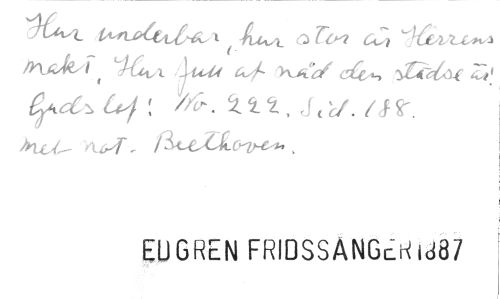 Hur underbar, hur stor är Herrens
makt, Hur full af nåd den städse är!
Guds lof! No. 222. Sid. 188.
met not. Beethoven.
EDGREN FRIDSSÅNGER 1887